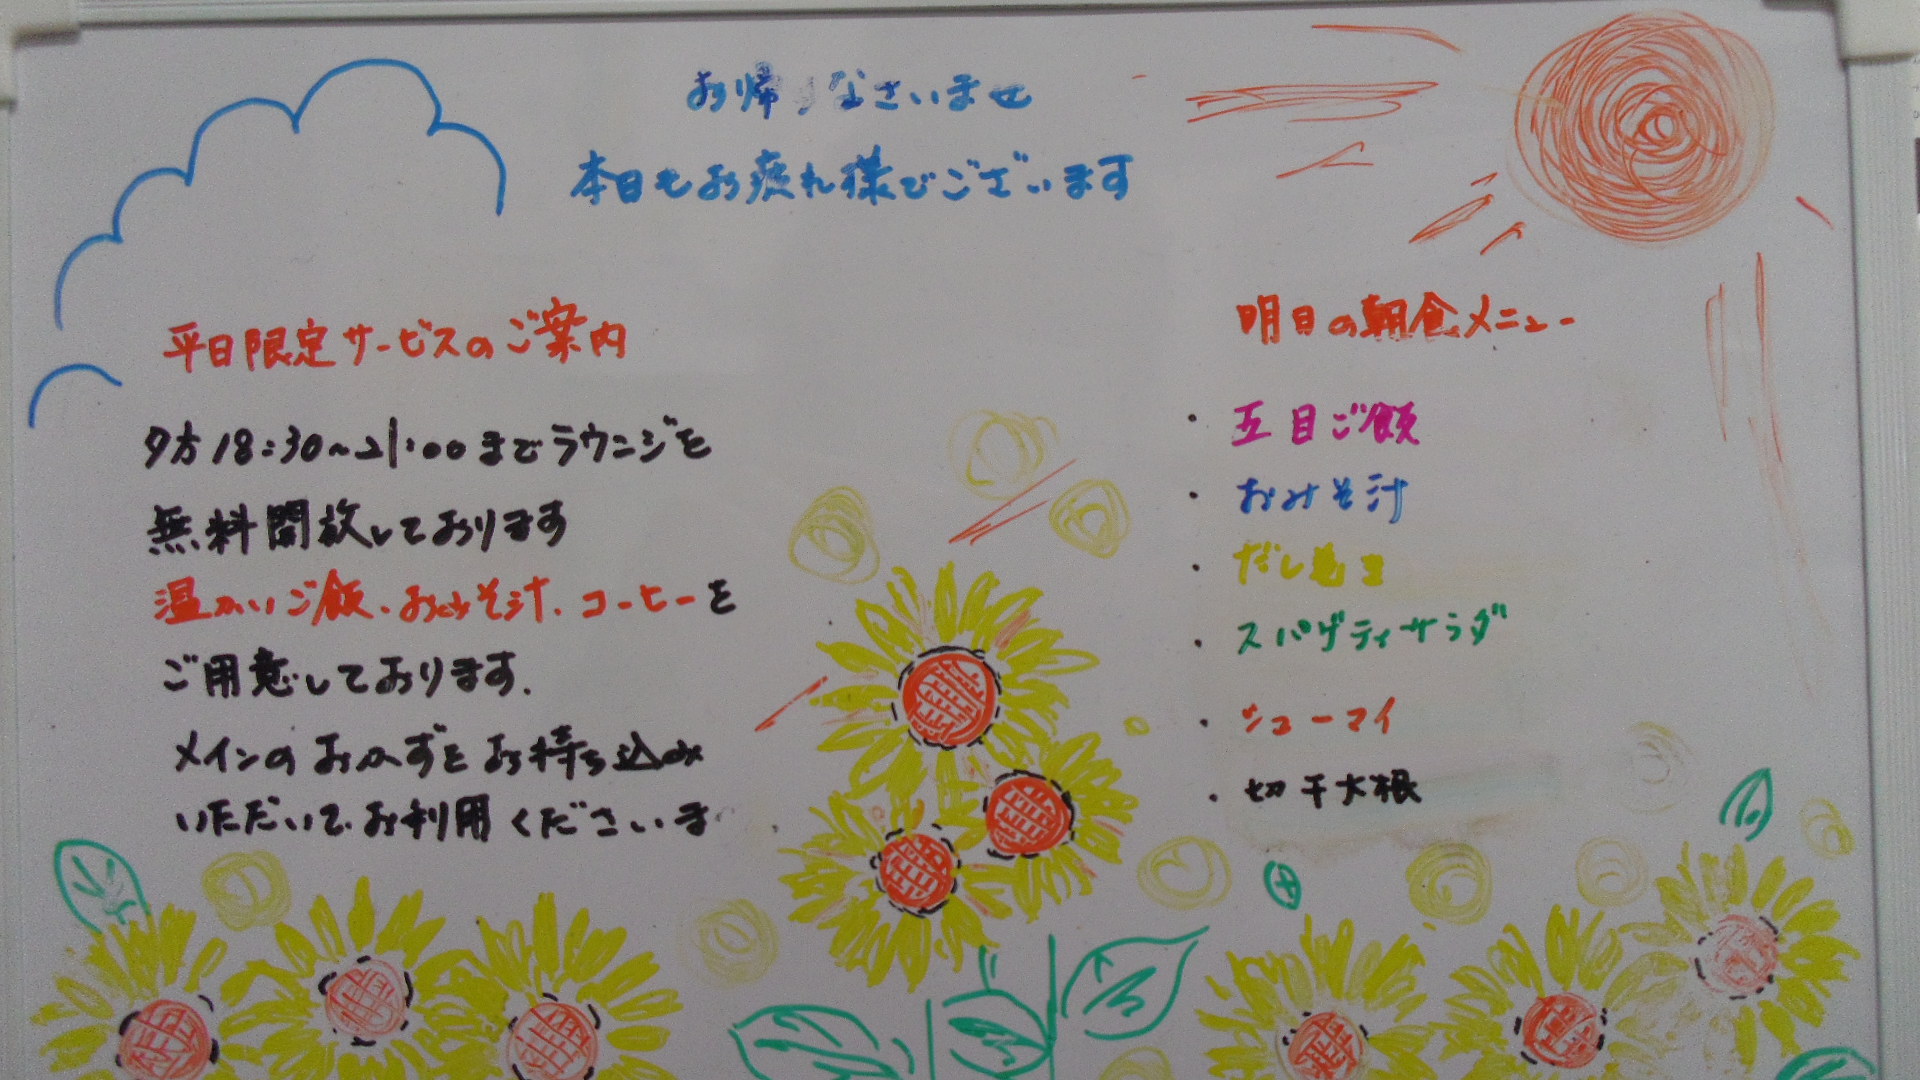 お帰りなさいませ
本日もお疲れ様でございます
平日限定サービスのご案内
夕方18:30~21:00までラウンジを
無料開放しております
温かいご飯、おみそ汁、コーヒーを
ご用意しております。
メインのおかずをお持ち込み
いただいて、お利用くださいま
明日の朝食メニュー
・五目ご飯
・おみそ汁
・だし巻き
・スパゲティサラダ
・シューマイ
・切干大根